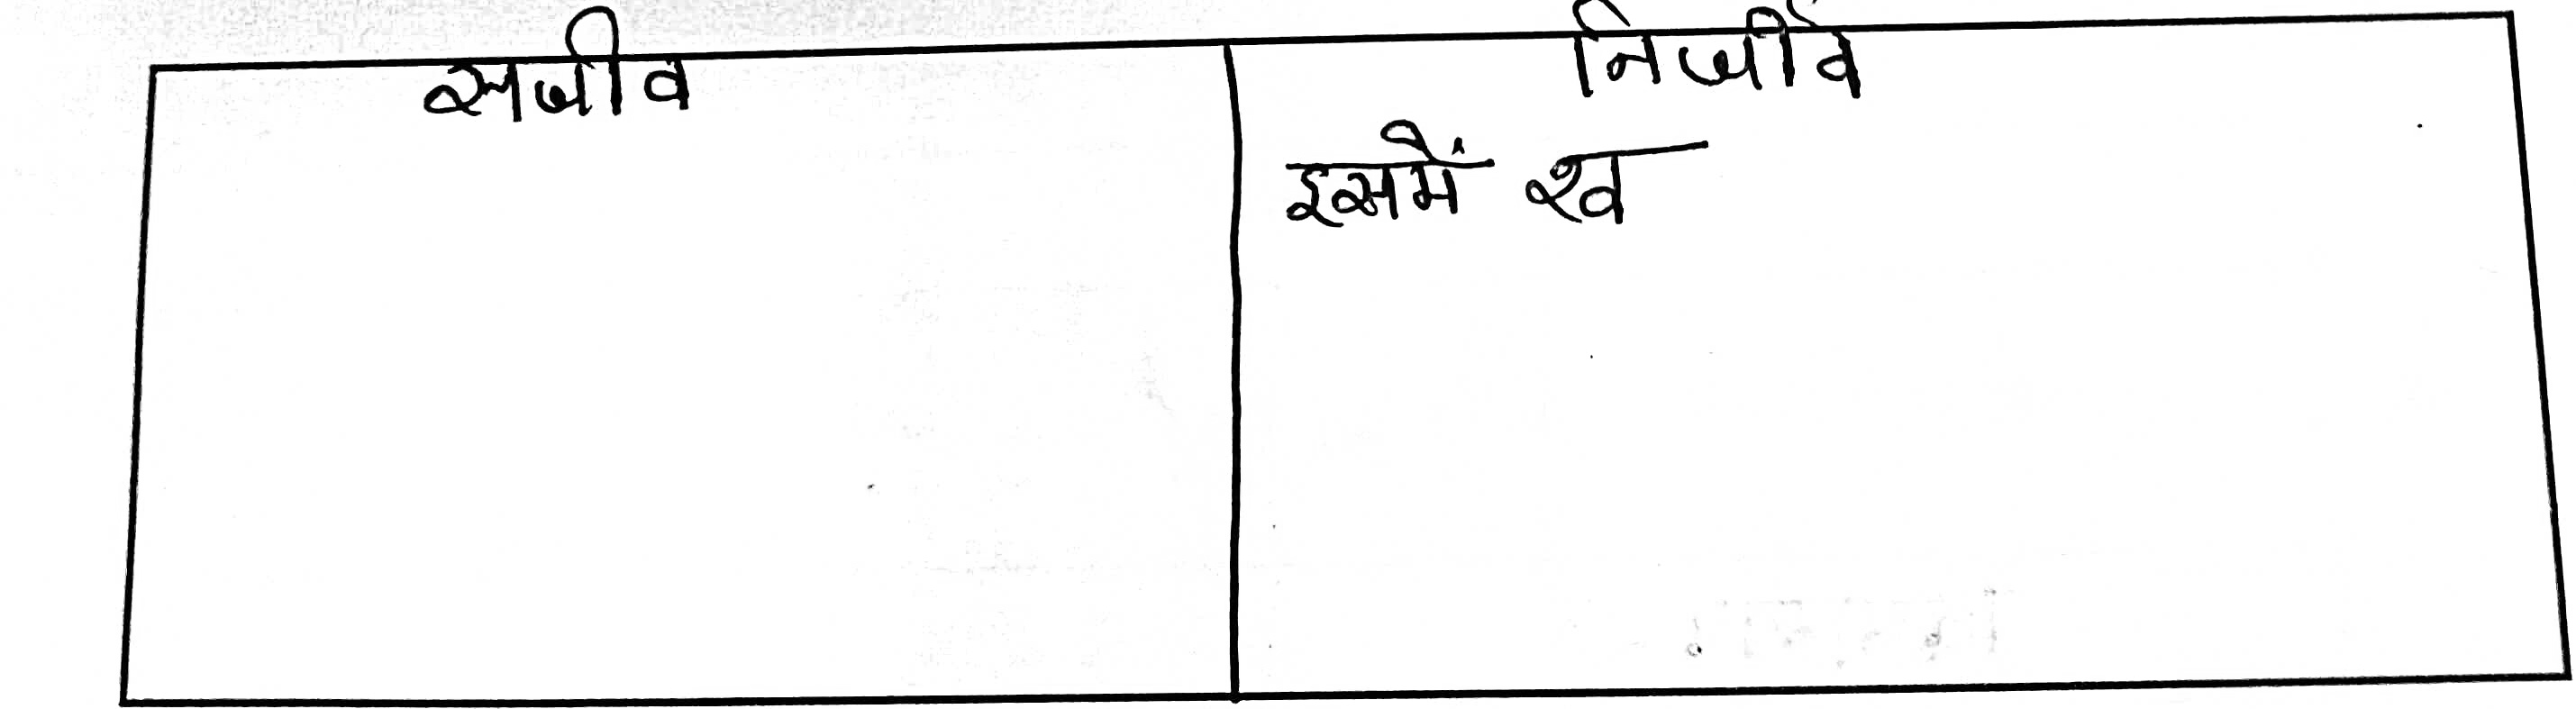 सजीव
निर्जीव
इसमें श्व